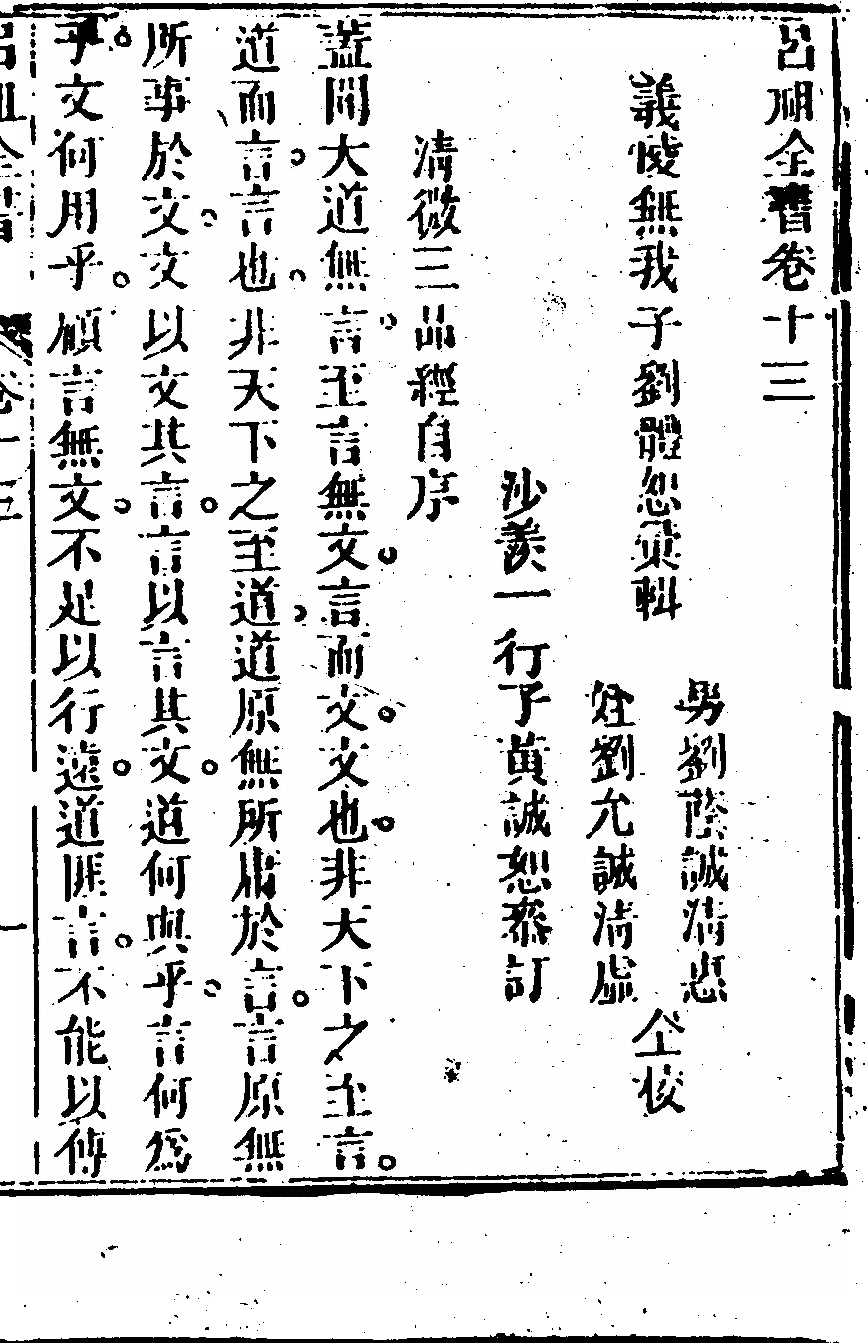 呂祖全書卷十三
義陵無我子劉體恕彙輯
男劉蔭誠清惠
姪劉允誠清虛
仝校
沙羨一行子黃誠恕叅訂
清微三品經自序
蓋聞大道無言。至言無文。言而文。文也。非大下之至言。
道而言。言也。非天下之至道。道原無所庸於言。言原無
所事於文。文以文其言。言以言其文。道何與乎。言何爲
乎。文何用乎。顧言無文。不足以行遠。道匪言。不能以傳
呂祖全書 卷十三 一